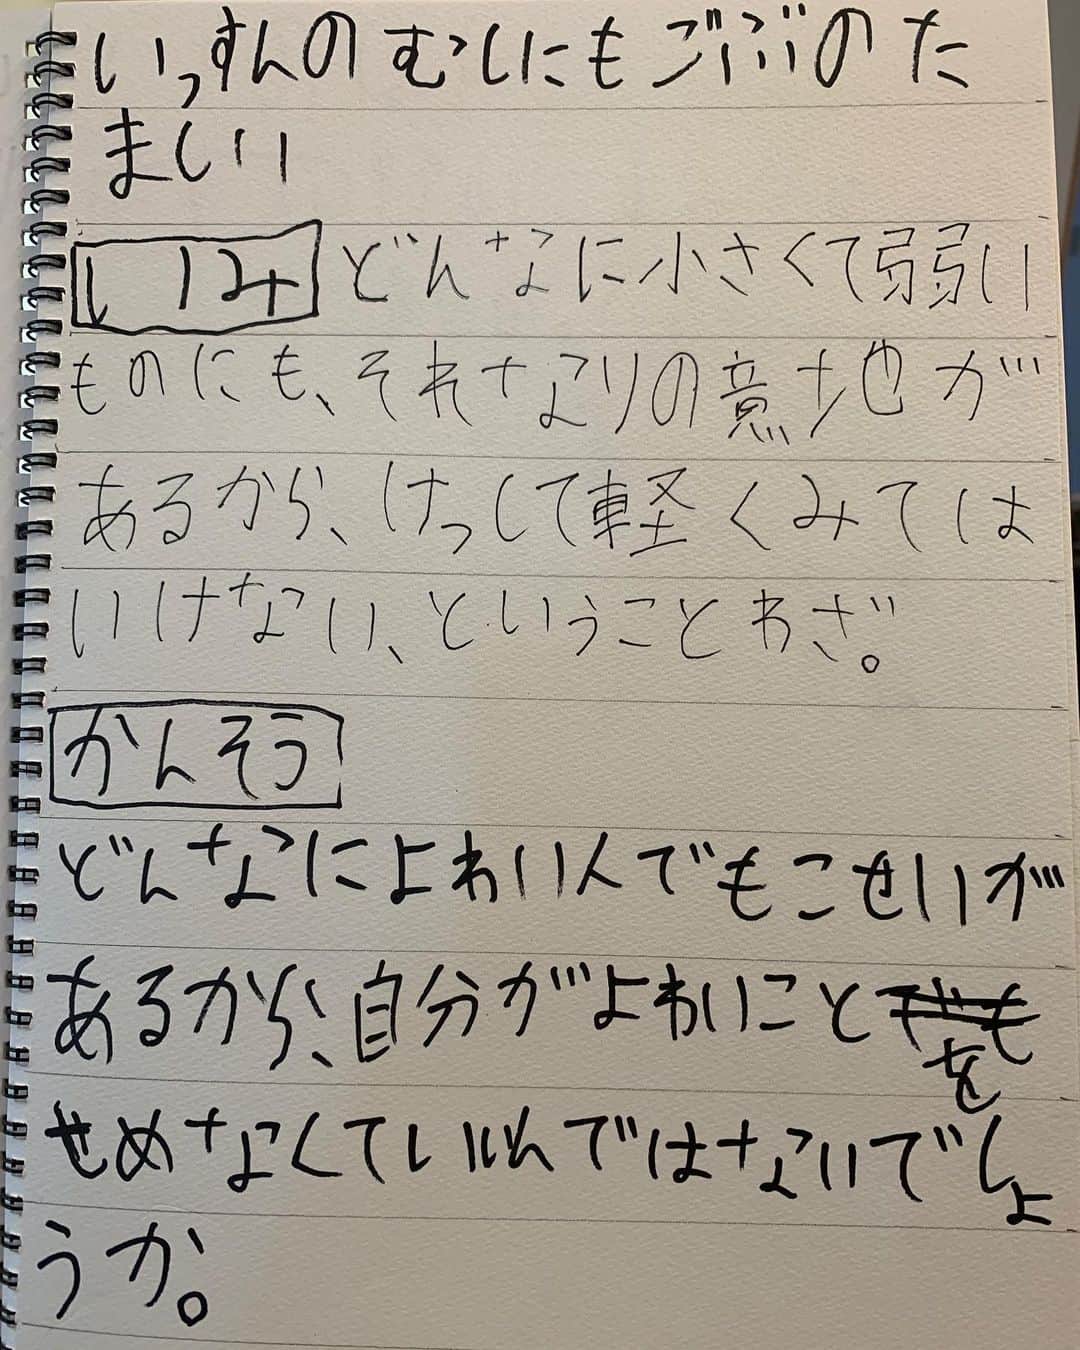 いっすんのむしにもごぶのた
ましい
いみ どんなに小さくて弱い
ものにも、それなりの意地が
あるから、けっして軽くみては
いけない、ということわざ。
かんそう
どんなによわい人でもこせいが
あるから、自分がよわいことでも
を
せめなくていいんではないでしょ
うか。